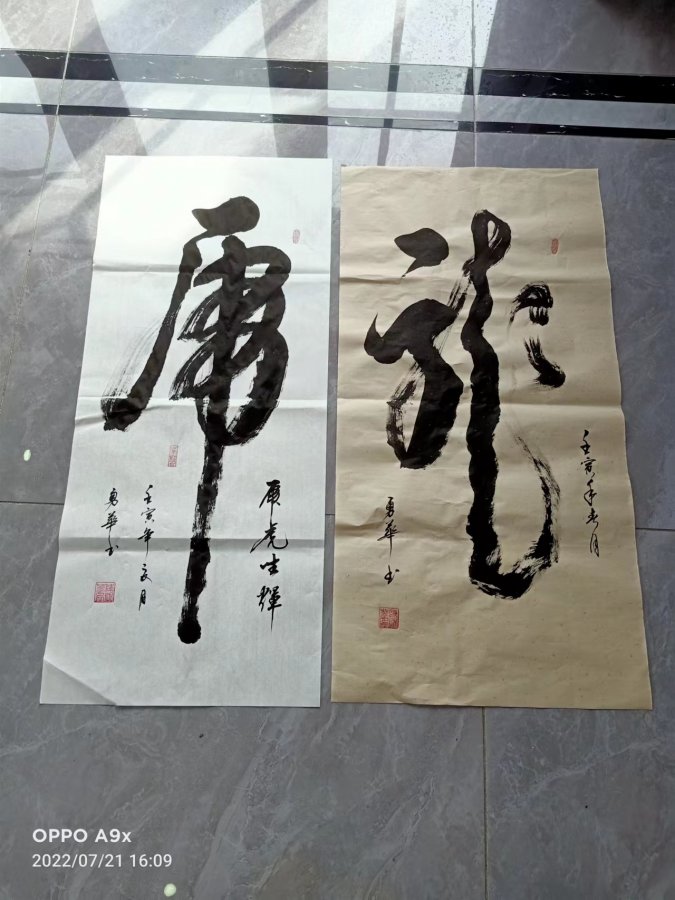 虎
虎虎生輝
壬寅年夏月
勇華书
龍
壬寅年
月
勇華书
OPPO A9x
2022/07/21 16:09